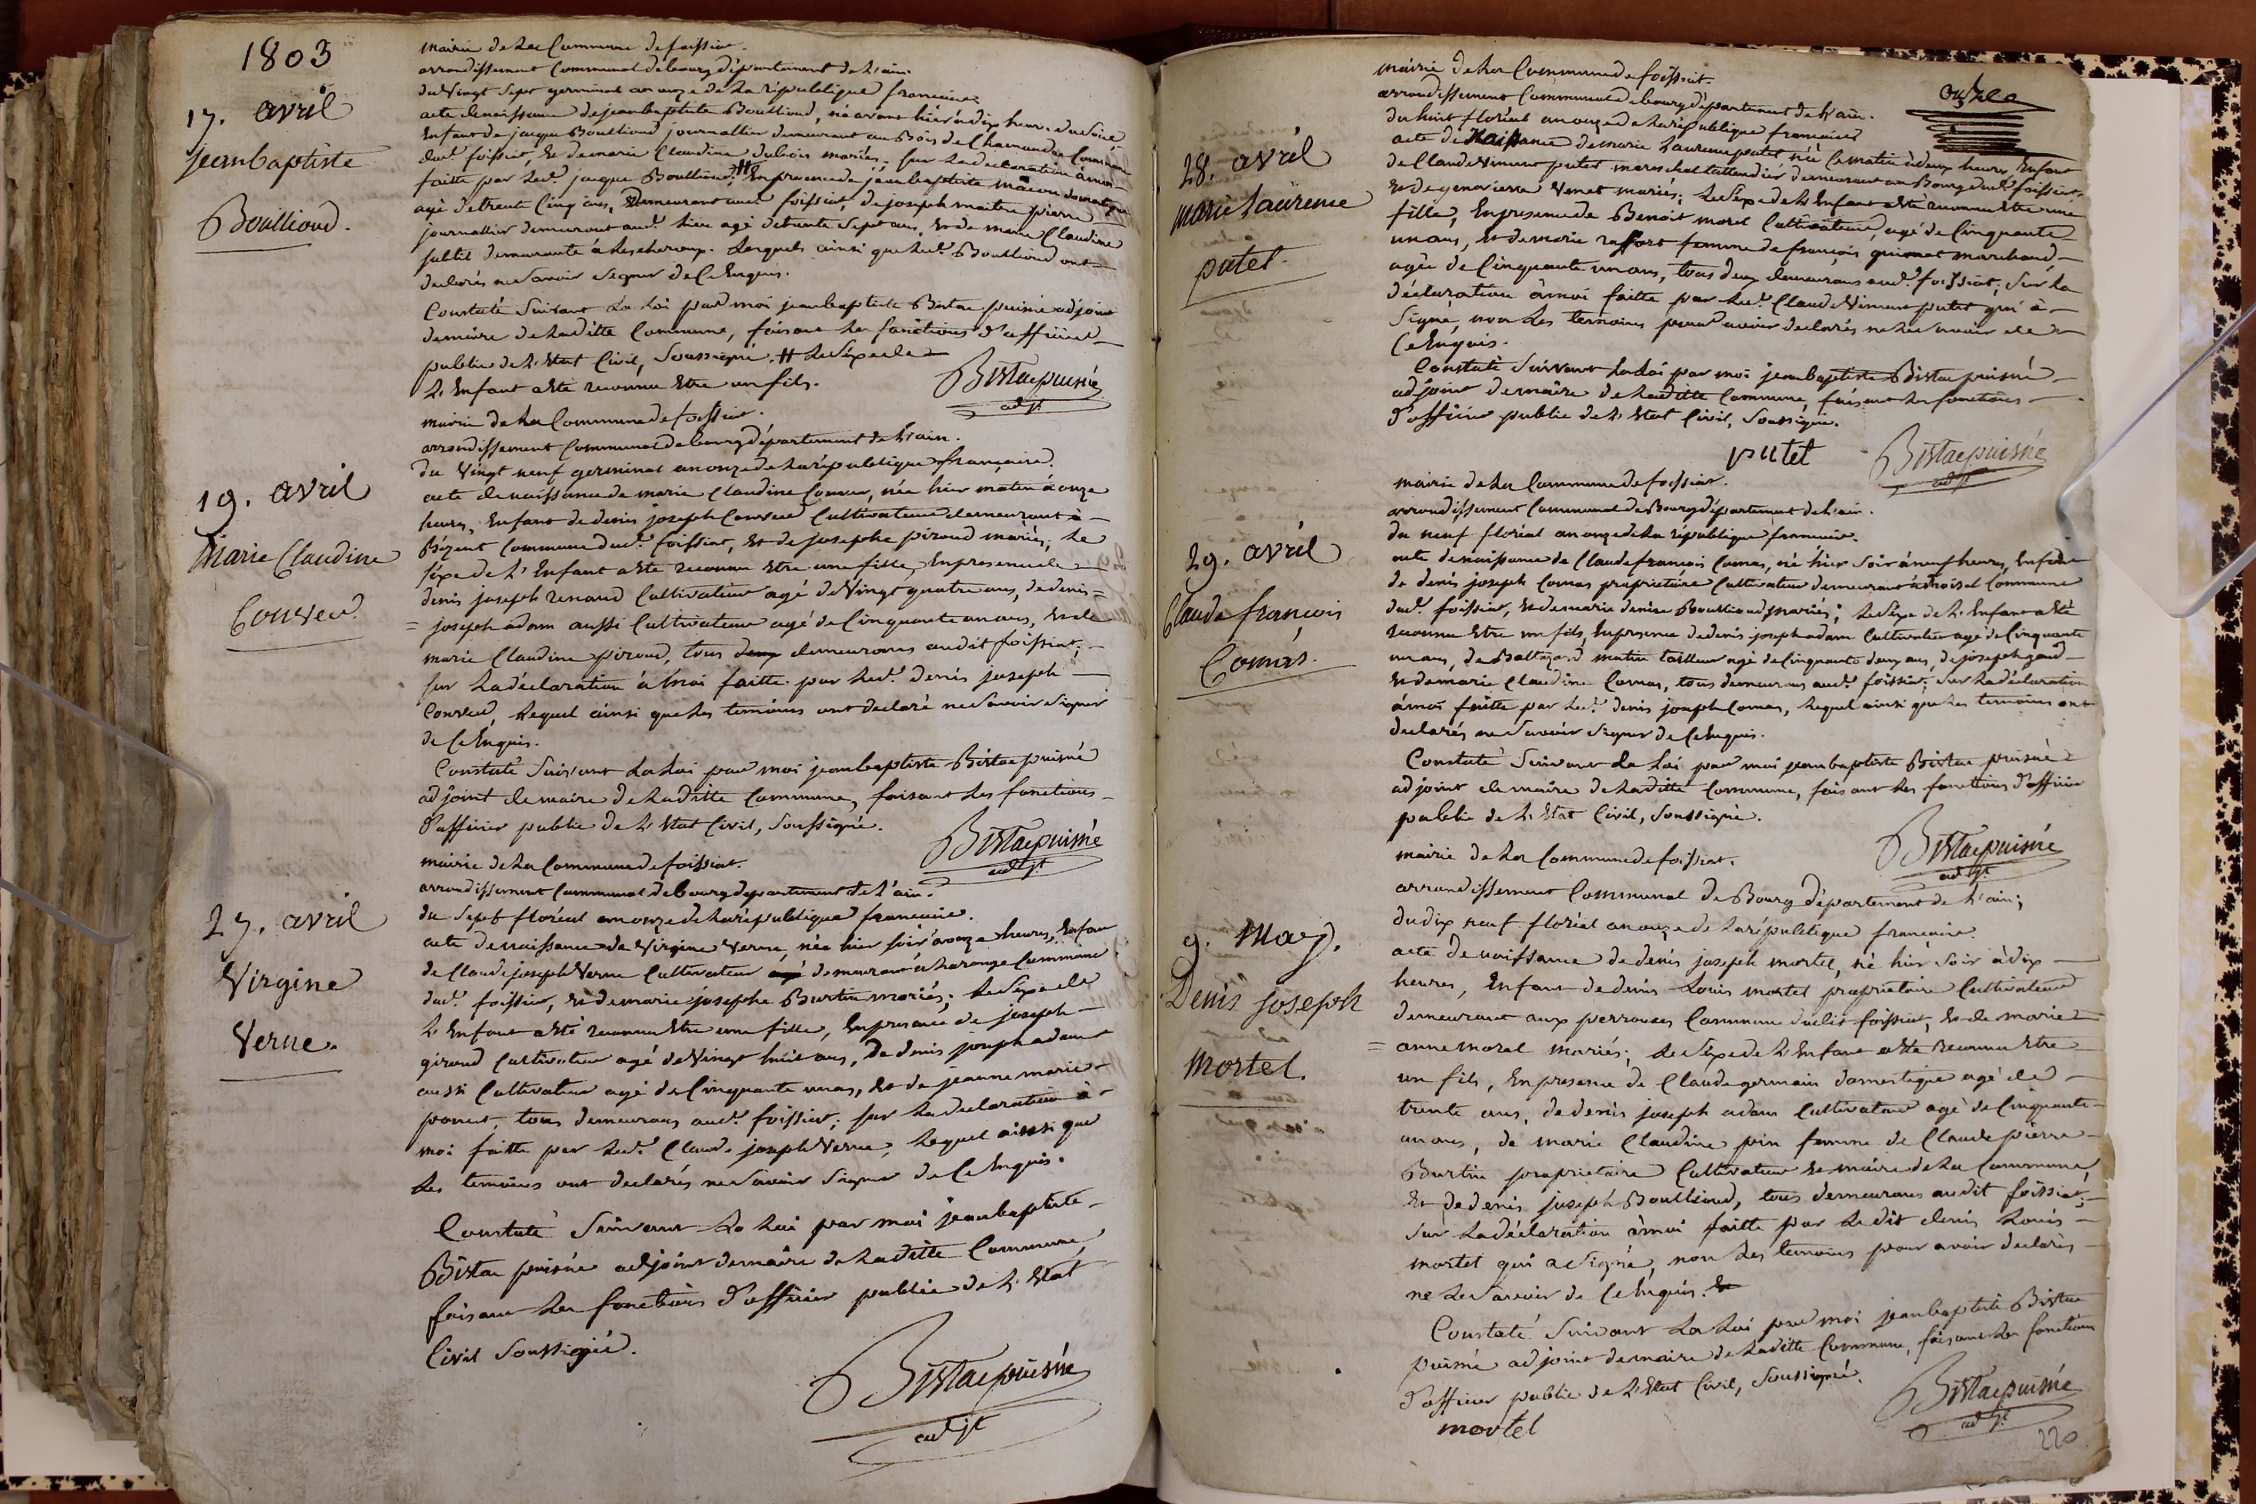 1803
17. avril
jeanbaptiste
Boullioud.
mairie de La Commune de foissiat.
arrondissement Communal debourg département de L'ain.
du Vingt Sept germinal an onze de La république francaise.
acte denaissance dejeanbaptiste Boullioud, né avant hier à dix heures du Soir,
Enfant de jacque Boullioud journallier demeurant au Bois de Chamandre Commune
dud.t foissiat, Et demarie Claudine dubois mariés; sur La declaration à moi
faitte par Led.t jacque Boullioud; # En presence de jeanbaptiste macon domestique
agé detrente Cinq ans, demeurant aud.t foissiat, de joseph maitre pierre
journallier demeurant aud.t lieu agé detrente Sept ans, Et de marie Claudine
demeurante à Lescheroux. Lesquels ainsi que Led.t Boullioud ont
declarés ne Savoir Signer de Ce Enquis.
Constaté Suivant La Loi par moi jeanbaptiste Bistac puisné adjoint
demaire de Laditte Commune, faisant Les fonctions d'officier
public de L'Etat Civil, Soussigné. # Le Séxe de
L'Enfant a Eté reconnu Etre un fils.
Bistac puisné
adjt
19. avril
Marie Claudine
Conveu.
mairie de La Commune de foissiat.
arrondissement Communal de bourg département de L'ain.
du Vingt neuf germinal an onze de La république francaise.
acte de naissance de marie Claudine Conveu, née hier matin à onze
heures, Enfant de denis joseph Conveu Cultivateur demeurant à
Bézent Commune dud.t foissiat, Et de josephe piroud mariés; Le
séxe de L'Enfant a Eté reconnu Etre une fille, En presence de
denis joseph renaud Cultivateur agé de Vingt quatre ans, de denis
joseph adam aussi Cultivateur agé de Cinquante un ans, Et de
marie Claudine piroud, tous deux demeurans audit foissiat;
sur La déclaration à Moi faitte par Led.t denis joseph
Conveu, Lequel ainsi que Les temoins ont declaré ne Savoir Signer
de Ce Enquis.
Constaté Suivant La Loi par moi jeanbaptiste Bistac puisné
adjoint de maire de Laditte Commune, faisant Les fonctions
d'officier public de L'Etat Civil, Soussigné.
Bistac puisné
adjt
27. avril
Virgine
Verne.
mairie de La Commune de foissiat.
arrondissement Communal de bourg département de L'ain.
du Sept floréal an onze de La république francaise.
acte denaissance de Virgine Verne, née hier soir à onze heures, Enfant
de Claude joseph Verne Cultivateur demeurant à Commune
dud.t foissiat, Et de marie josephe Burtin mariés; Le Séxe de
L'Enfant a Eté reconnu Etre une fille, En presence de joseph
giroud Cultivateur agé de Vingt huit ans, de denis joseph adam
aussi Cultivateur agé de Cinquante un ans, Et de jeanne marie
poncet, tous demeurans aud.t foissiat; sur La declaration à
moi faitte par Led.t Claude joseph Verne, Lequel ainsi que
Les temoins ont declarés ne Savoir Signer de Ce Enquis.
Constaté Suivant La Loi par moi jeanbaptiste
Bistac puisné adjoint demaire de Laditte Commune,
faisant Les fonctions d'officier public de L'Etat
Civil Soussigné.
Bistac puisné
adjt
28. avril
Marie Laurence
putet.
mairie de La Commune de foissiat.
arrondissement Communal de bourg département de L'ain.
du huit floréal an onze de La république francaise
acte de Naissance de marie Laurence putet, née Ce matin à deux heures, Enfant
de Claude Vincent putet mareschal tallendier demeurant au Bourg dud.t foissiat,
Et de genevieve Venet mariés; Le Séxe de L'Enfant a Eté reconnu Etre une
fille, En presence de Benoit morel Cultivateur, agé de Cinquante
un ans, Et de marie raffort femme de francois guionet marchand
agée de Cinquante un ans, tous deux demeurans aud.t foissiat, Sur La
déclaration à moi faitte par Led.t Claude Vincent putet qui à
Signé, non Les temoins pour avoir declarés ne Le Savoir de
Ce Enquis.
Constaté Suivant La Loi par moi jeanbaptiste Bistac puisné
adjoint de maire de Laditte Commune, faisant Les fonctions
d'officier public de L'Etat Civil, Soussigné.
putet
Bistac puisné
adjt
29. avril
Claude françois
Comas.
mairie de La Commune de foissiat.
arrondissement Communal de Bourg département de L'ain.
du neuf floréal an onze de La république francaise.
acte denaissance de Claude francois Comas, né hier Soir à neuf heures, Enfant
de denis joseph Comas proprietaire Cultivateur demeurant à Commune
dud.t foissiat, Et de marie denise Boullioud mariés; Le Séxe de L'Enfant a Eté
reconnu Etre un fils, En presence de denis joseph adam Cultivateur agé de Cinquante
un ans, de Baltazard matin tailleur agé de Cinquante deux ans, de joseph
Et de marie Claudine Comas, tous demeurans aud.t foissiat; Sur La déclaration
à moi faitte par Led.t denis joseph Comas, Lequel ainsi que Les temoins ont
declarés ne Savoir Signer de Ce Enquis.
Constaté Suivant La Loi par moi jeanbaptiste Bistac puisné
adjoint de maire de Laditte Commune, faisant Les fonctions d'officier
public de L'Etat Civil, Soussigné.
Bistac puisné
adjt
9. May.
Denis Joseph
Mortel.
mairie de La Commune de foissiat.
arrondissement Communal de Bourg département de L'ain;
du dix neuf floréal an onze de La république francaise.
acte de naissance de denis joseph mortel, né hier Soir à dix
heures, Enfant de denis Louis mortel proprietaire Cultivateur
demeurant aux perrouses Commune dudit foissiat, Et de marie
anne morel mariés; Le Séxe de L'Enfant a Eté reconnu Etre
un fils, En presence de Claude germain domestique agé de
trente ans, de denis joseph adam Cultivateur agé de Cinquante
un ans, de marie Claudine pin femme de Claude pierre
Burtin proprietaire Cultivateur Et maire de La Commune,
Et de denis joseph Boullioud, tous demeurans audit foissiat;
Sur La déclaration à moi faitte par Ledit denis Louis
mortel qui a Signé, non Les temoins pour avoir declarés
ne Le Savoir de Ce Enquis.
Constaté Suivant La Loi par moi jeanbaptiste Bistac
puisné adjoint demaire de Laditte Commune, faisant Les fonctions
d'officier public de L'Etat Civil, Soussigné.
mortel
Bistac puisné
adjt
220